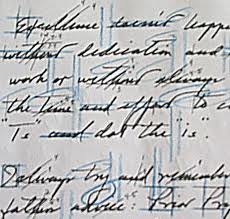 "Excellence" doesn't happ
without dedication and
work or without always
the time and effort to c
"Ts" and dot the "is".
I always try and remembe
father advice: Prior Pr